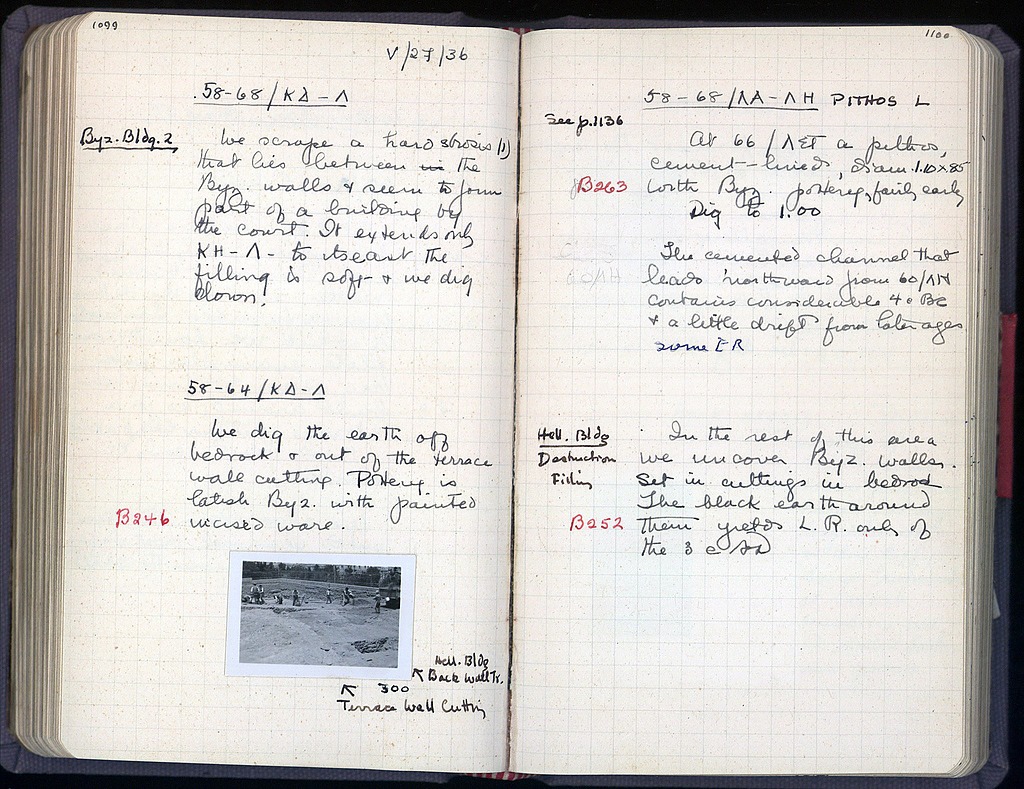 1099
V/27/36
58-68/ΚΔ-Λ
Byz. Bldg. 2
We scrape a hard strosis (1)
that lies between in the
Byz. walls & seem to form
part of a building by
the court. It extends only
ΚΗ-Λ - to its east the
filling is soft & we dig
down.
58-64/ΚΔ-Λ
We dig the earth off
bedrock & out of the terrace
wall cutting. Pottery is
latish Byz. with painted
B246
incised ware.
Hell. Bldg
Back Wall Tr.
300
Terrace Wall Cutting
1100
58-68/ΛΑ-ΛΗ PITHOS L
See p.1136
At 66/ΛΣΤ a pithos,
cement-lined, diam. 1.10 x .85
B263
with Byz. pottery, fairly early
Dig to 1.00
The cemented channel that
leads northward from 60/ΛΗ
60/ΛΗ
contains considerable 4c BC
& a little drift from later ages
some ER
Hell. Bldg
Destruction
Filling
In the rest of this area
we uncover Byz. walls.
Set in cuttings in bedrock
The black earth around
B252
them yields L. R. only of
the 3 c AD